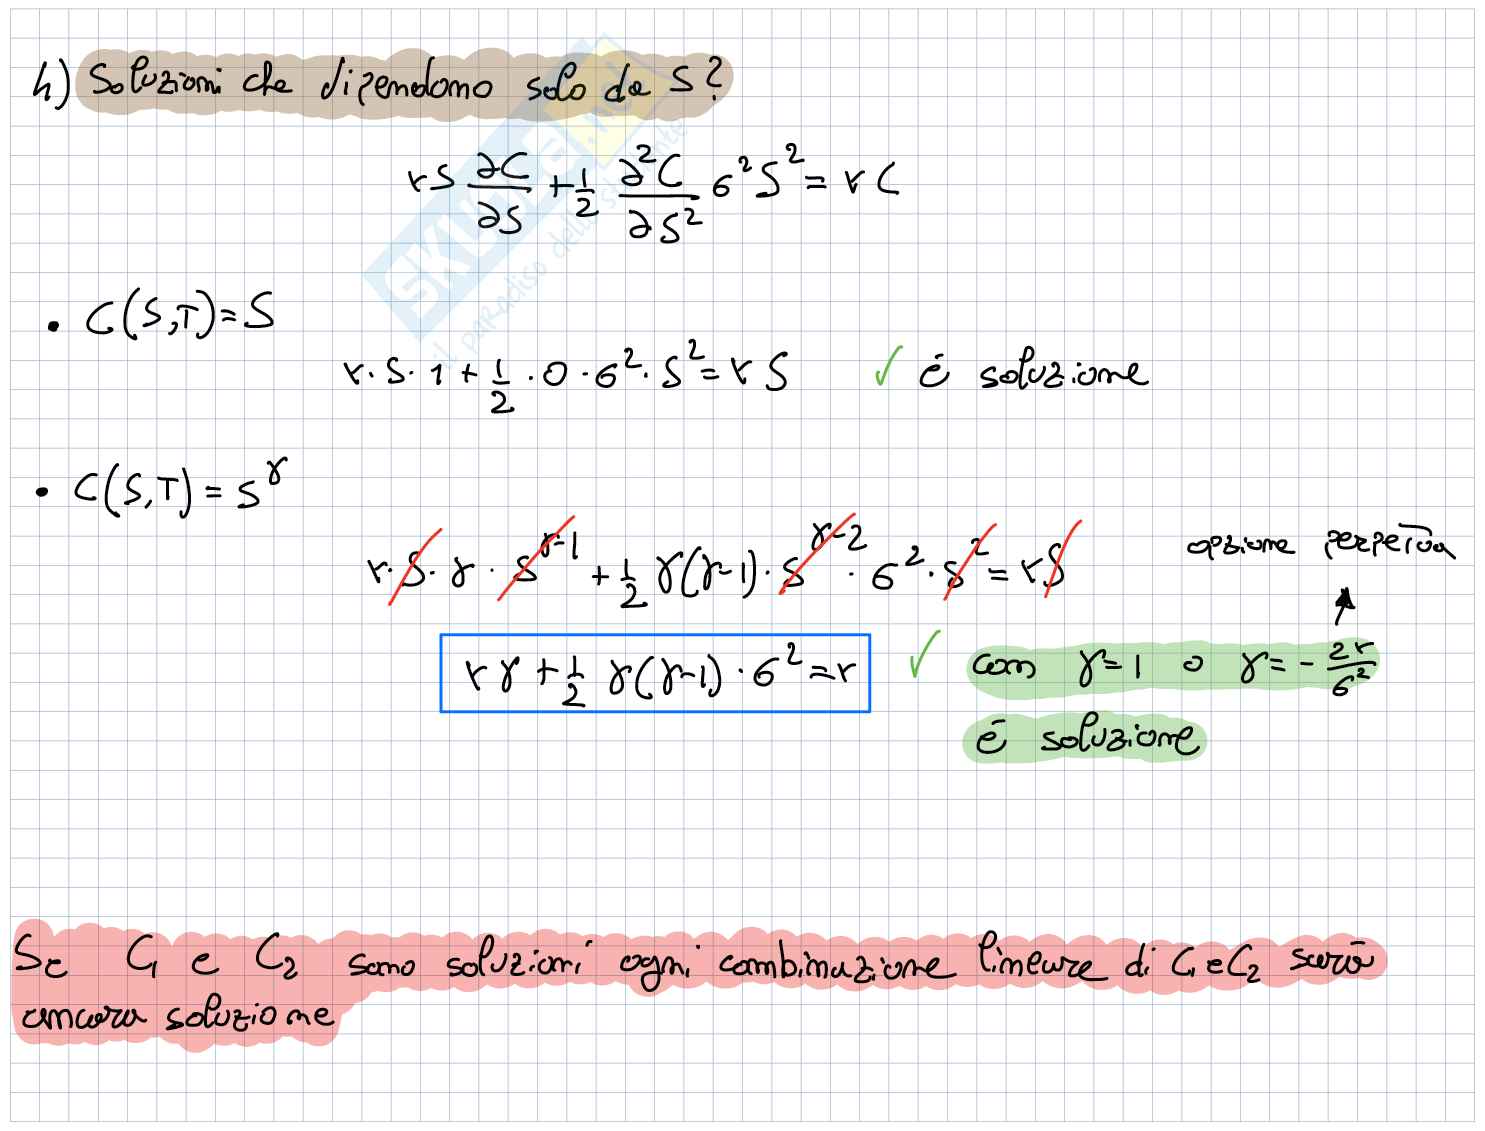 h) Soluzioni che dipendono solo da S?
rS ∂C/∂S + 1/2 ∂²C/∂S² σ²S² = rC
• C(S,T) = S
r·S·1 + 1/2 · 0 · σ² · S² = rS ✓ è soluzione
• C(S,T) = S^γ
r·S·γ·S^γ-1 + 1/2 γ(γ-1)·S^γ-2 · σ² · S² = rS
opzione perpetua
rγ + 1/2 γ(γ-1)·σ² = r ✓ con γ=1 o γ = -2r/σ²
è soluzione
Se C₁ e C₂ sono soluzioni ogni combinazione lineare di C₁ e C₂ sarà
ancora soluzione
SKUOLA.net
il paradiso dello studente